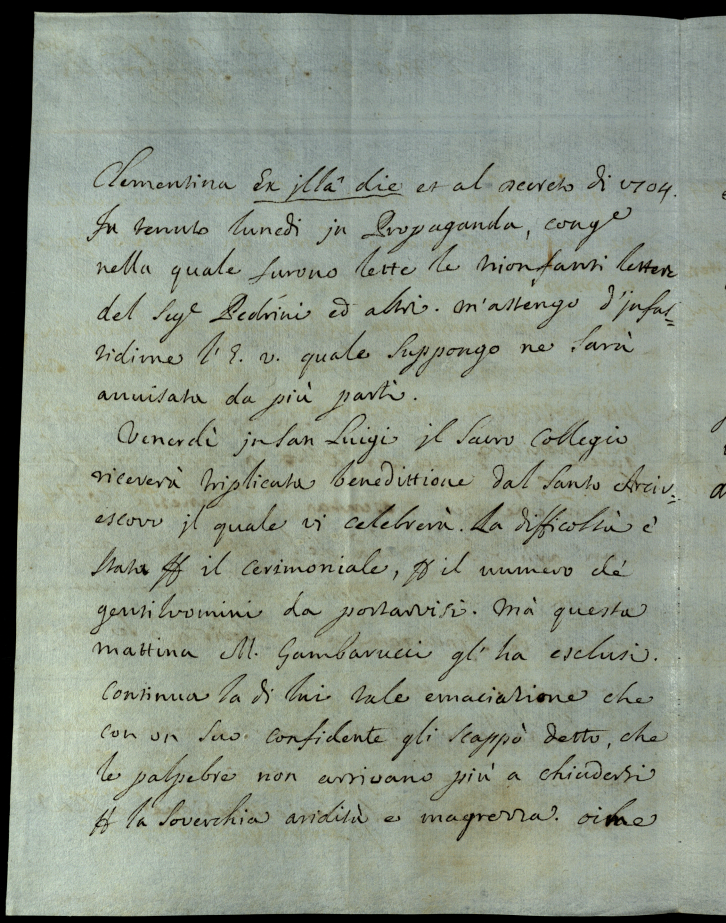 Clementina Ex jlla die et al decreto di 1704.
Fu tenuto lunedi jn Propaganda, conge
nella quale furono lette le trionfanti lettere
del Sige Pedrini ed altri. m'astengo d'jnfas=
tidirne l'E. v. quale suppongo ne sarà
auuisata da più parti.
Venerdì jn San Luigi jl Sacro Collegio
riceverà triplicata benedittione dal Santo Arciv=
escovo jl quale vi celebrerà. La difficoltà è
stata ꝑ il cerimoniale, ꝑ il numero de'
gentilvomini da portarvisi. Mà questa
mattina M. Gambarucci gl'ha esclusi.
Continua la di lui tale emaciatione che
con un suo confidente gli scappò detto, che
le palpebre non arrivano più a chiudersi
ꝑ la soverchia aridità e magrezza. oihe